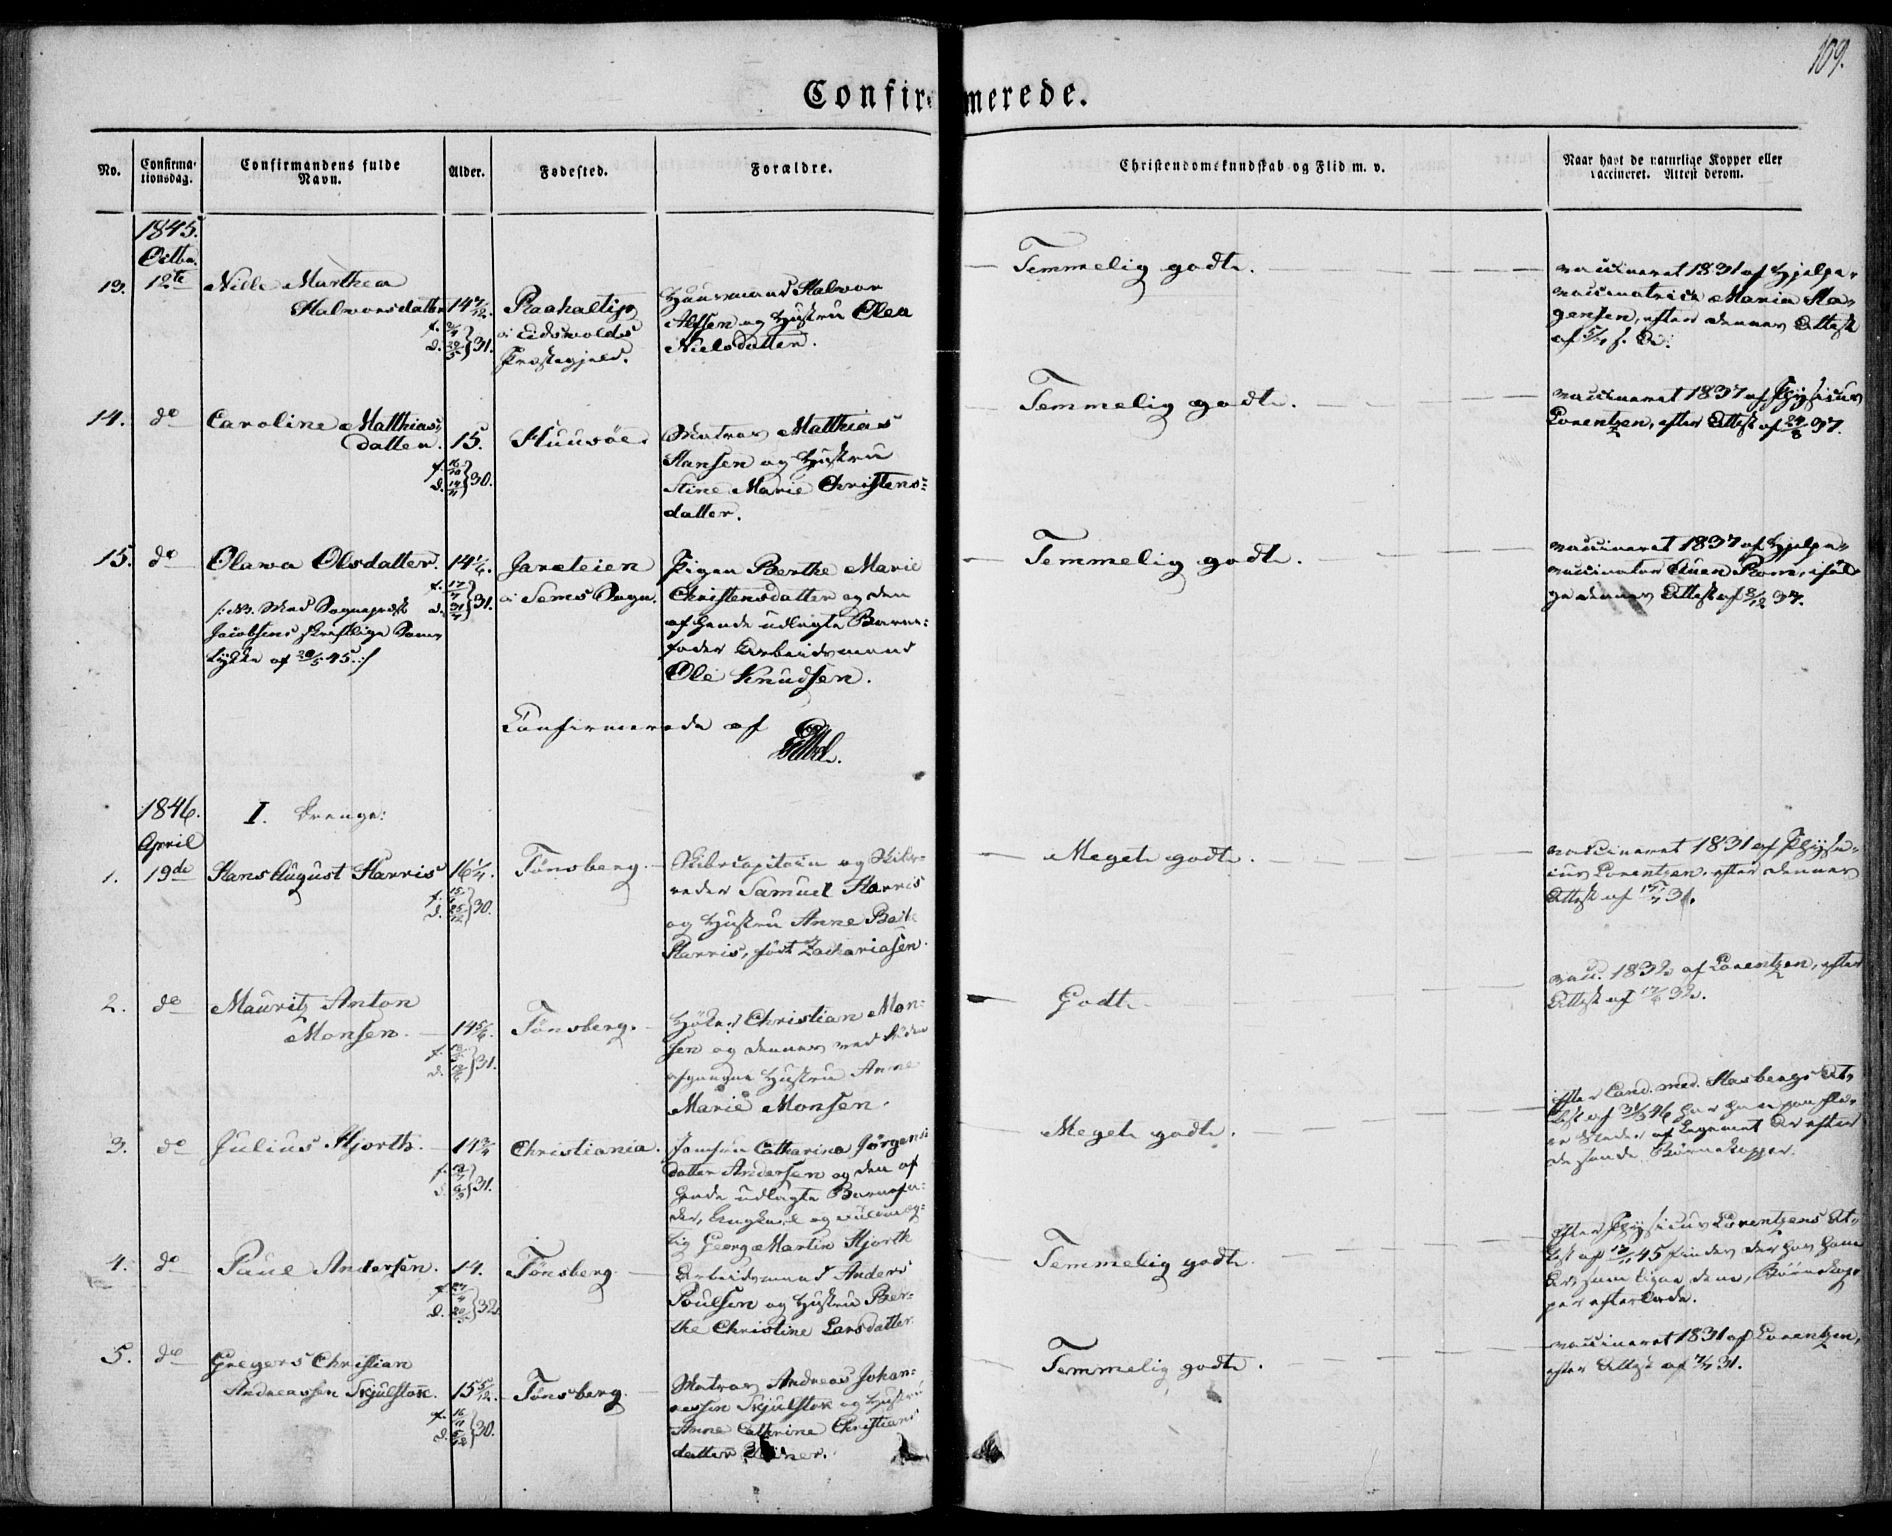 109.
Confirmerede.
No.
Confirma-
tionsdag.
Confirmandens fulde
Navn.
Alder.
Fødested.
Forældre.
Christendomskundskab og Flid m. v.
Naar havt de naturlige Kopper eller
vaccineret. Attest derom.
1845.
Octbr.
13. 12te Marthea
Halvorsdatter 14 7/12.
31.
i Eidsvolds
Præstegjeld.
Huusmand Halvor
Alfsen og Hustru Olea
Nielsdatter.
Temmelig godt.
vaccineret 1831 af Hjelpe-
vaccinatrice Maria Ha-
gensen, efter dennes Attest
14. do Caroline Matthias-
datter. 15.
f.
d. 30.
Huusøe.
Matros Matthias
Hansen og Hustru
Stine Marie Christens-
datter.
Temmelig godt.
vaccineret 1837 af Physicus
Lorentzen, efter Attest af 24/8 37.
15. do Olava Olsdatter. 14 1/6.
f. 17
d. 31 31.
/: NB. Med Sognepræst
Jacobsens skriftlige Sam-
tykke af 28/5 45. :/
Jareteien
i Sems Sogn.
Pigen Berthe Marie
Christensdatter og den
af hende udlagte Barne-
fader Arbeidsmand
Ole Knudsen.
Temmelig godt.
vaccineret 1837 af Hjelpe-
vaccinator Rom, iføl-
ge dennes Attest af 8/12 37.
Confirmerede af
1846. I. Drenge:
April
1. 19de Hans August Harris 16 1/4.
f. 15
d. 25/12 30.
Tønsberg.
Skibscapitain og Skibs-
reder Samuel Harris
og Hustru Anne
Harris, født Zachariasen.
Meget godt.
vaccineret 1831 af Physi-
cus Lorentzen, efter dennes
Attest af 31.
2. do Mauritz Anton
Monsen. 14 5/6.
f.
d. 31.
Tønsberg.
Høker Christian Mon-
sen og dennes ved Døden
afgangne Hustru Anne
Marie Monsen.
Godt.
vacc. 1832 af Lorentzen, efter
Attest af 17/6 32.
3. do Julius Hjorth. 14 3/4
f.
d. 31.
Christiania.
Jomfru Catharina Jørgens-
datter Andersen og den af
hende udlagte Barnefa-
der, og Fuldmæg-
tig Georg Martin Hjorth
Meget godt.
efter Cand. med. Hasbergs At-
test af 31/3 46 har han paa fle-
re Steder af Legemet Ar efter
de sande Børnekopper.
4. do Paul Andersen. 14.
f.
d. 32.
Tønsberg.
Arbeidsmand Anders
Poulsen og Hustru Ber-
the Christine Larsdatter
Temmelig godt.
efter Physicus Lorentzens At-
test af 12/11 45 findes der hos ham
Ar, som ligne dem, Børnekop-
per efterlade.
5. do Gregers Christian
Andreassen Skjulstok. 15 5/12.
f. 16/11
d. 30.
Tønsberg.
Matros Andreas Johan-
nessen Skjulstok og Hustru
Anne Cathrine Christians-
datter
Temmelig godt.
vaccineret 1831 af Lorentzen,
efter Attest af 31.